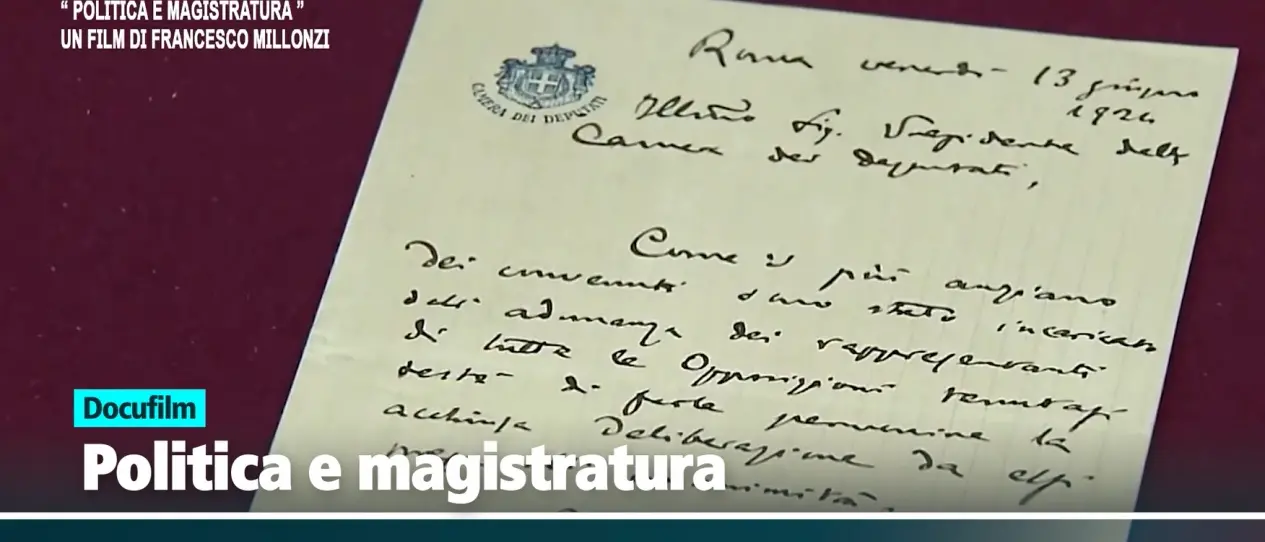 “ POLITICA E MAGISTRATURA ”
UN FILM DI FRANCESCO MILLONZI
CAMERA DEI DEPUTATI
Roma venerdì 13 giugno
1924
Illmo Sig. Presidente della
Camera dei deputati,
Come il più anziano
dei convenuti sono stato incaricato
dall' adunanza dei rappresentanti
di tutte le Opposizioni tenutasi
testè di farle pervenire la
acchiusa deliberazione da essi
unanimità
Docufilm
Politica e magistratura